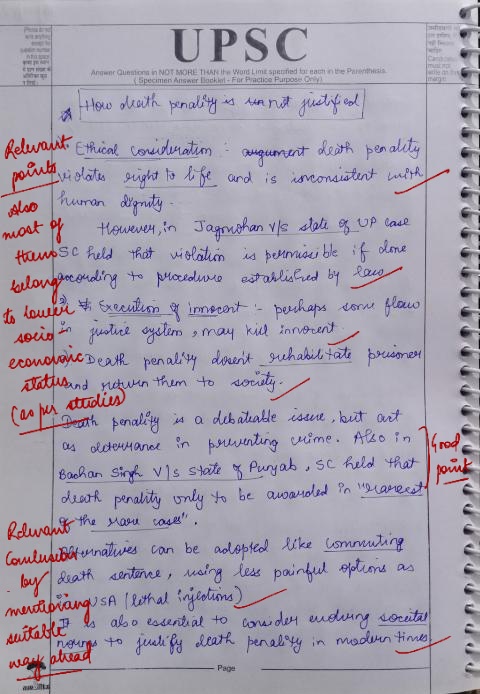 UPSC
Answer Questions in NOT MORE THAN the Word Limit specified for each in the Parenthesis.
( Specimen Answer Booklet - For Practice Purpose Only)
How death penality is not justified
Relevant points
Also most of them belong to lower socio economic status (as per studies)
Ethical consideration : death penality
violates right to life and is inconsistent with
human dignity.
However, in Jagmohan V/s state of UP case
SC held that violation is permissible if done
according to procedure established by law
Execution of innocent :- perhaps some flaw
in justice system, may kill innocent.
Death penality dosent rehabilitate prisoner
and return them to society.
Death penality is a debatiable issue, but act
as deterrance in preventing crime. Also in
Bachan Singh V/s State of Punjab, SC held that
death penality only to be awarded in "rarest
of the rare cases".
Good point
Relevant Conclusion by mentioning suitable way ahead
Alternatives can be adopted like commuting
death sentence, using less painful options as
in USA (lethal injections)
It is also essential to consider evolving societal
norms to justify death penality in modern times.
Page